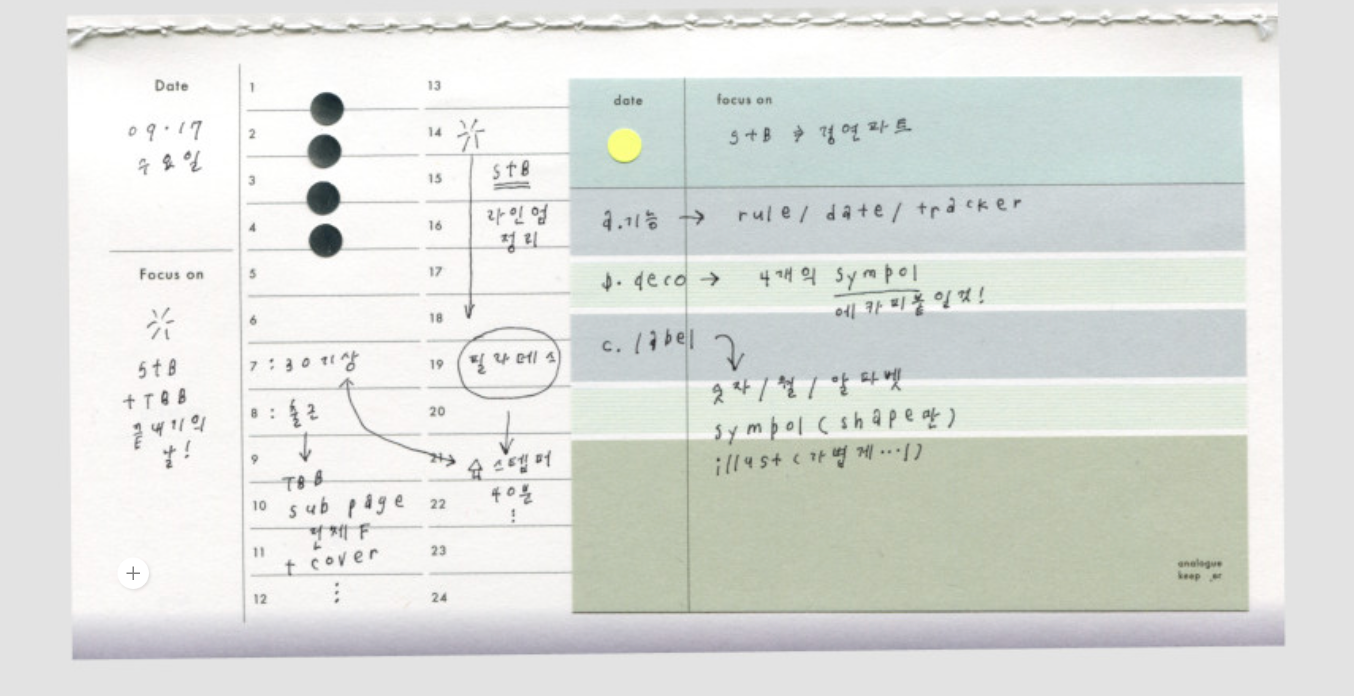 Date
09.17
수요일
Focus on
StB
+ TBB
끝내기의
날!
1
2
3
4
5
6
7 : 30 기상
8 : 출근
9
TBB
10 sub page
전체 F
11 + cover
12
13
14
15 StB
16 라인업
정리
17
18
19 필라테스
20
21 스텝퍼
22 40분
23
24
date
focus on
StB → 정연파트
a. 기능 → rule / date / tracker
b. deco → 4개의 sympol
에 카피붙일것!
c. label
숫자 / 월 / 알파벳
sympol ( shape만 )
illust ( 가볍게…! )
analogue
keep er